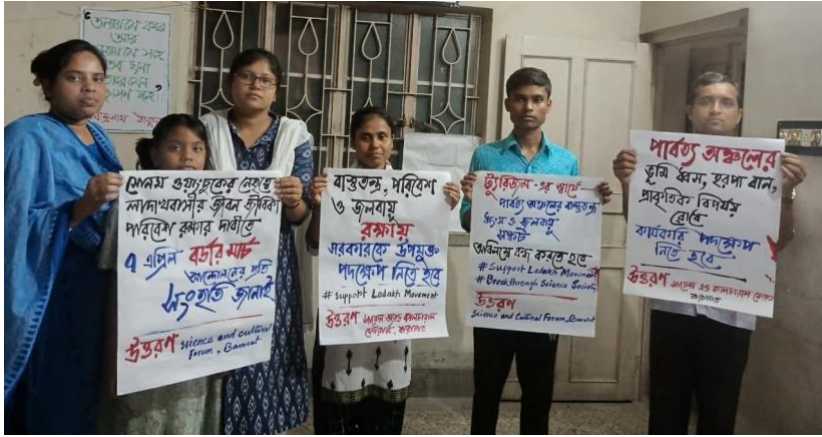 অন্যায় যে করে
আর
অন্যায় যে সহে
তব ঘৃণা
তারে যেন
তৃণসম দহে।
রবীন্দ্রনাথ ঠাকুর
সোনম ওয়াংচুকের নেতৃত্বে
লাদাখবাসীর জীবন জীবিকা
পরিবেশ রক্ষার দাবীতে
৭ এপ্রিল বর্ডার মার্চ
আন্দোলনের প্রতি
সংহতি জানাই
উত্তরণ science and cultural
Forum, Barasat
বাস্তুতন্ত্র, পরিবেশ
ও জলবায়ু
রক্ষায়
সরকারকে উপযুক্ত
পদক্ষেপ নিতে হবে
# Support Ladakh Movement
উত্তরণ সায়েন্স অ্যান্ড কালচারাল
ফোরাম, বারাসাত
ট্যুরিজম-এর স্বার্থে
পার্বত্য অঞ্চলের বাস্তুতন্ত্র
ধ্বংস ও জলবায়ু
সঙ্কট
অবিলম্বে বন্ধ করতে হবে
# Support Ladakh Movement
# Breakthrough Science Society
উত্তরণ
Science and Cultural Forum, Barasat
পার্বত্য অঞ্চলের
ভূমি ধ্বস, হরপা বান,
প্রাকৃতিক বিপর্যয়
রোধে
কার্যকরি পদক্ষেপ
নিতে হবে
উত্তরণ সায়েন্স এন্ড কালচারাল ফোরাম
বারাসাত